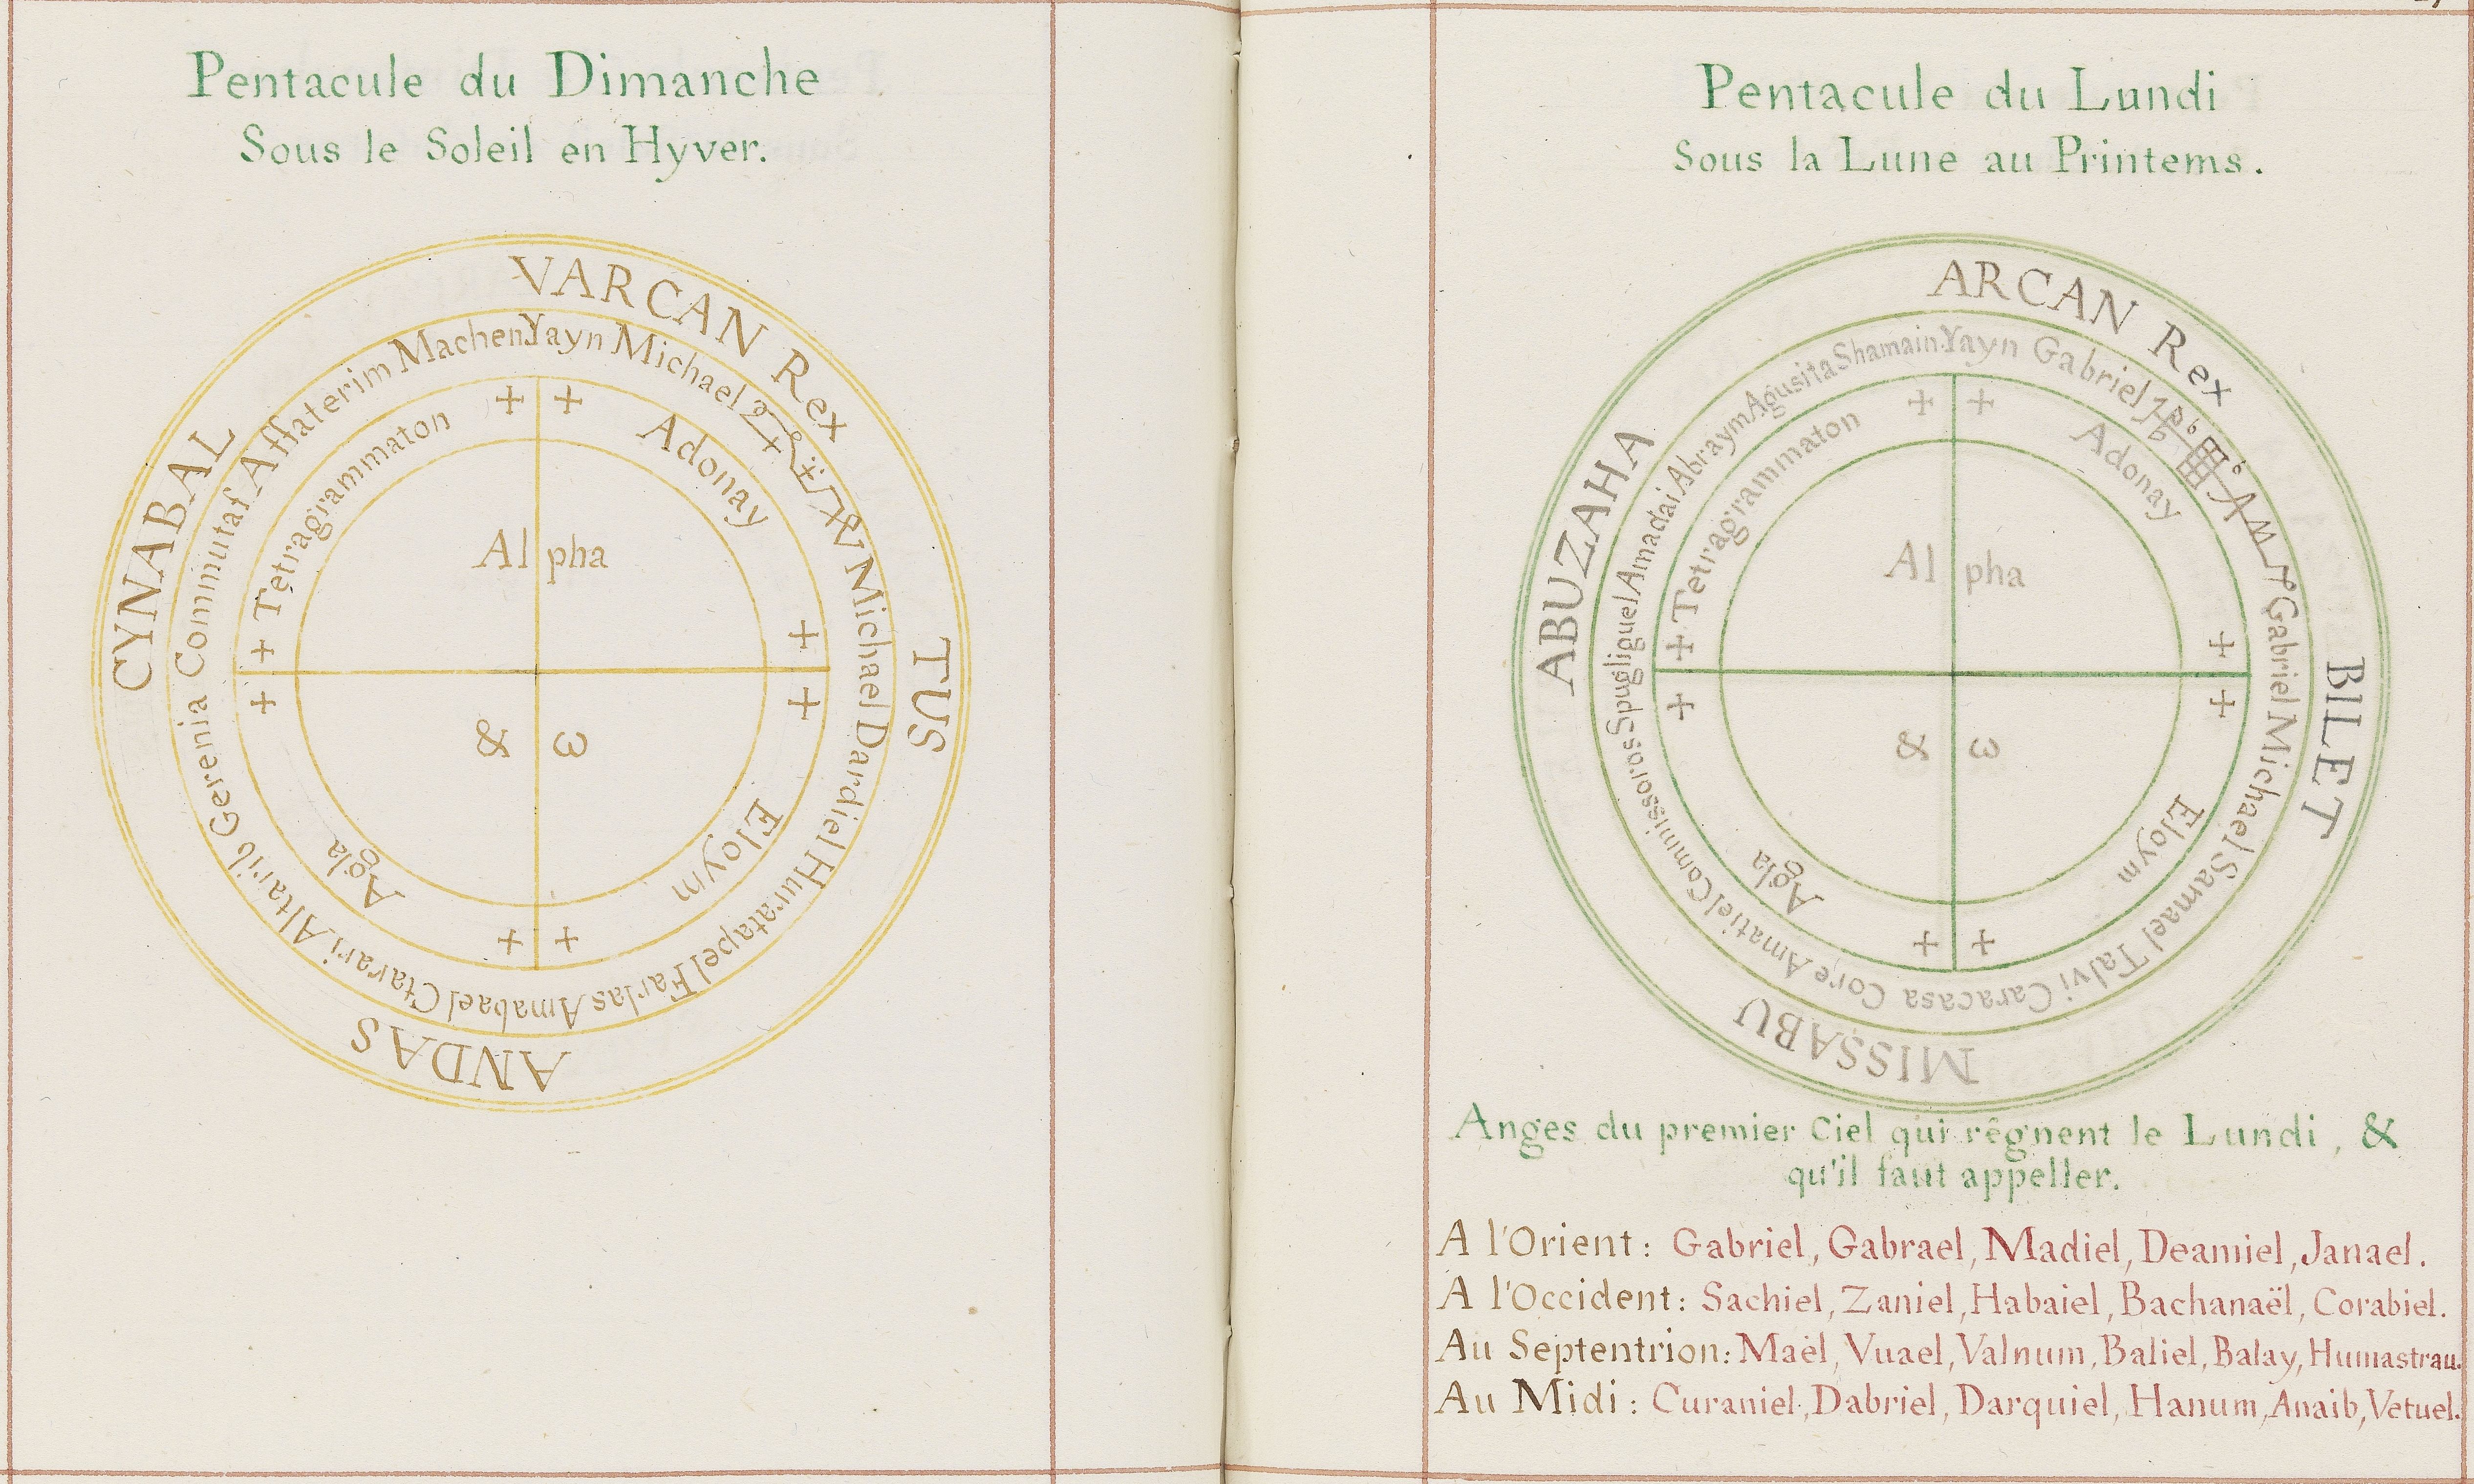 Pentacule du Dimanche
Sous le Soleil en Hyver.
VARCAN Rex
TUS
ANDAS
CYNABAL
Yayn Michael
Michael Dardiel Huratapel Farlas Amabael Ctarari Altarib Gerenia Commutaf Affaterim Machen
Adonay
Eloym
Agla
Tetragrammaton
Al pha
& ω
Pentacule du Lundi
Sous la Lune au Printems.
ARCAN Rex
BILET
MISSABU
ABUZAHA
Yayn Gabriel
Gabriel Michael Samael Talvi Caracasa Core Amatiel Commissoros Spugliguel Amadai Abraym Agusita Shamain
Adonay
Eloym
Agla
Tetragrammaton
Al pha
& ω
Anges du premier Ciel qui rêgnent le Lundi, &
qu'il faut appeller.
A l'Orient: Gabriel, Gabrael, Madiel, Deamiel, Janael.
A l'Occident: Sachiel, Zaniel, Habaiel, Bachanaël, Corabiel.
Au Septentrion: Maël, Vuael, Valnum, Baliel, Balay, Humastrau.
Au Midi: Curaniel, Dabriel, Darquiel, Hanum, Anaib, Vetuel.